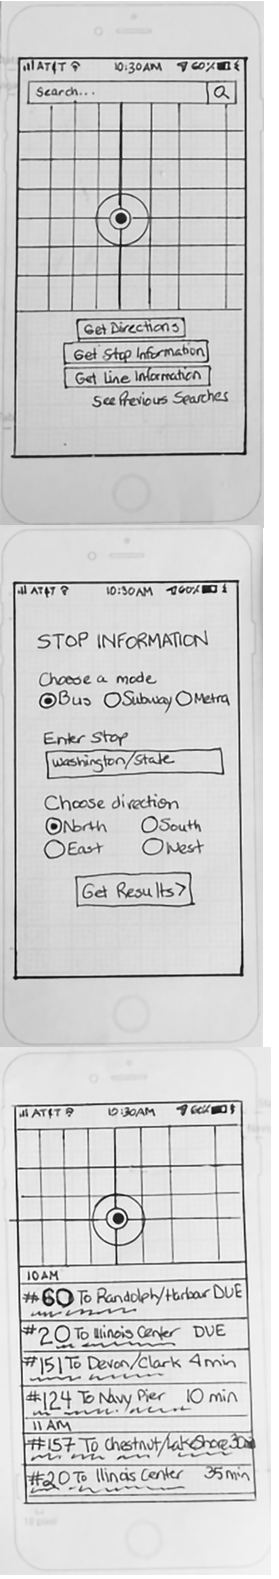 AT&T 10:30AM 60%
Search...
Get Directions
Get Stop Information
Get Line Information
See Previous Searches
AT&T 10:30AM 60%
STOP INFORMATION
Choose a mode
Bus Subway Metra
Enter Stop
Washington/State
Choose direction
North South
East West
Get Results>
AT&T 10:30AM 60%
10AM
#60 To Randolph/Harbour DUE
#20 To Illinois Center DUE
#151 To Devon/Clark 4min
#124 To Navy Pier 10 min
11 AM
#157 To Chestnut/LakeShore
#20 To Illinois Center 35min